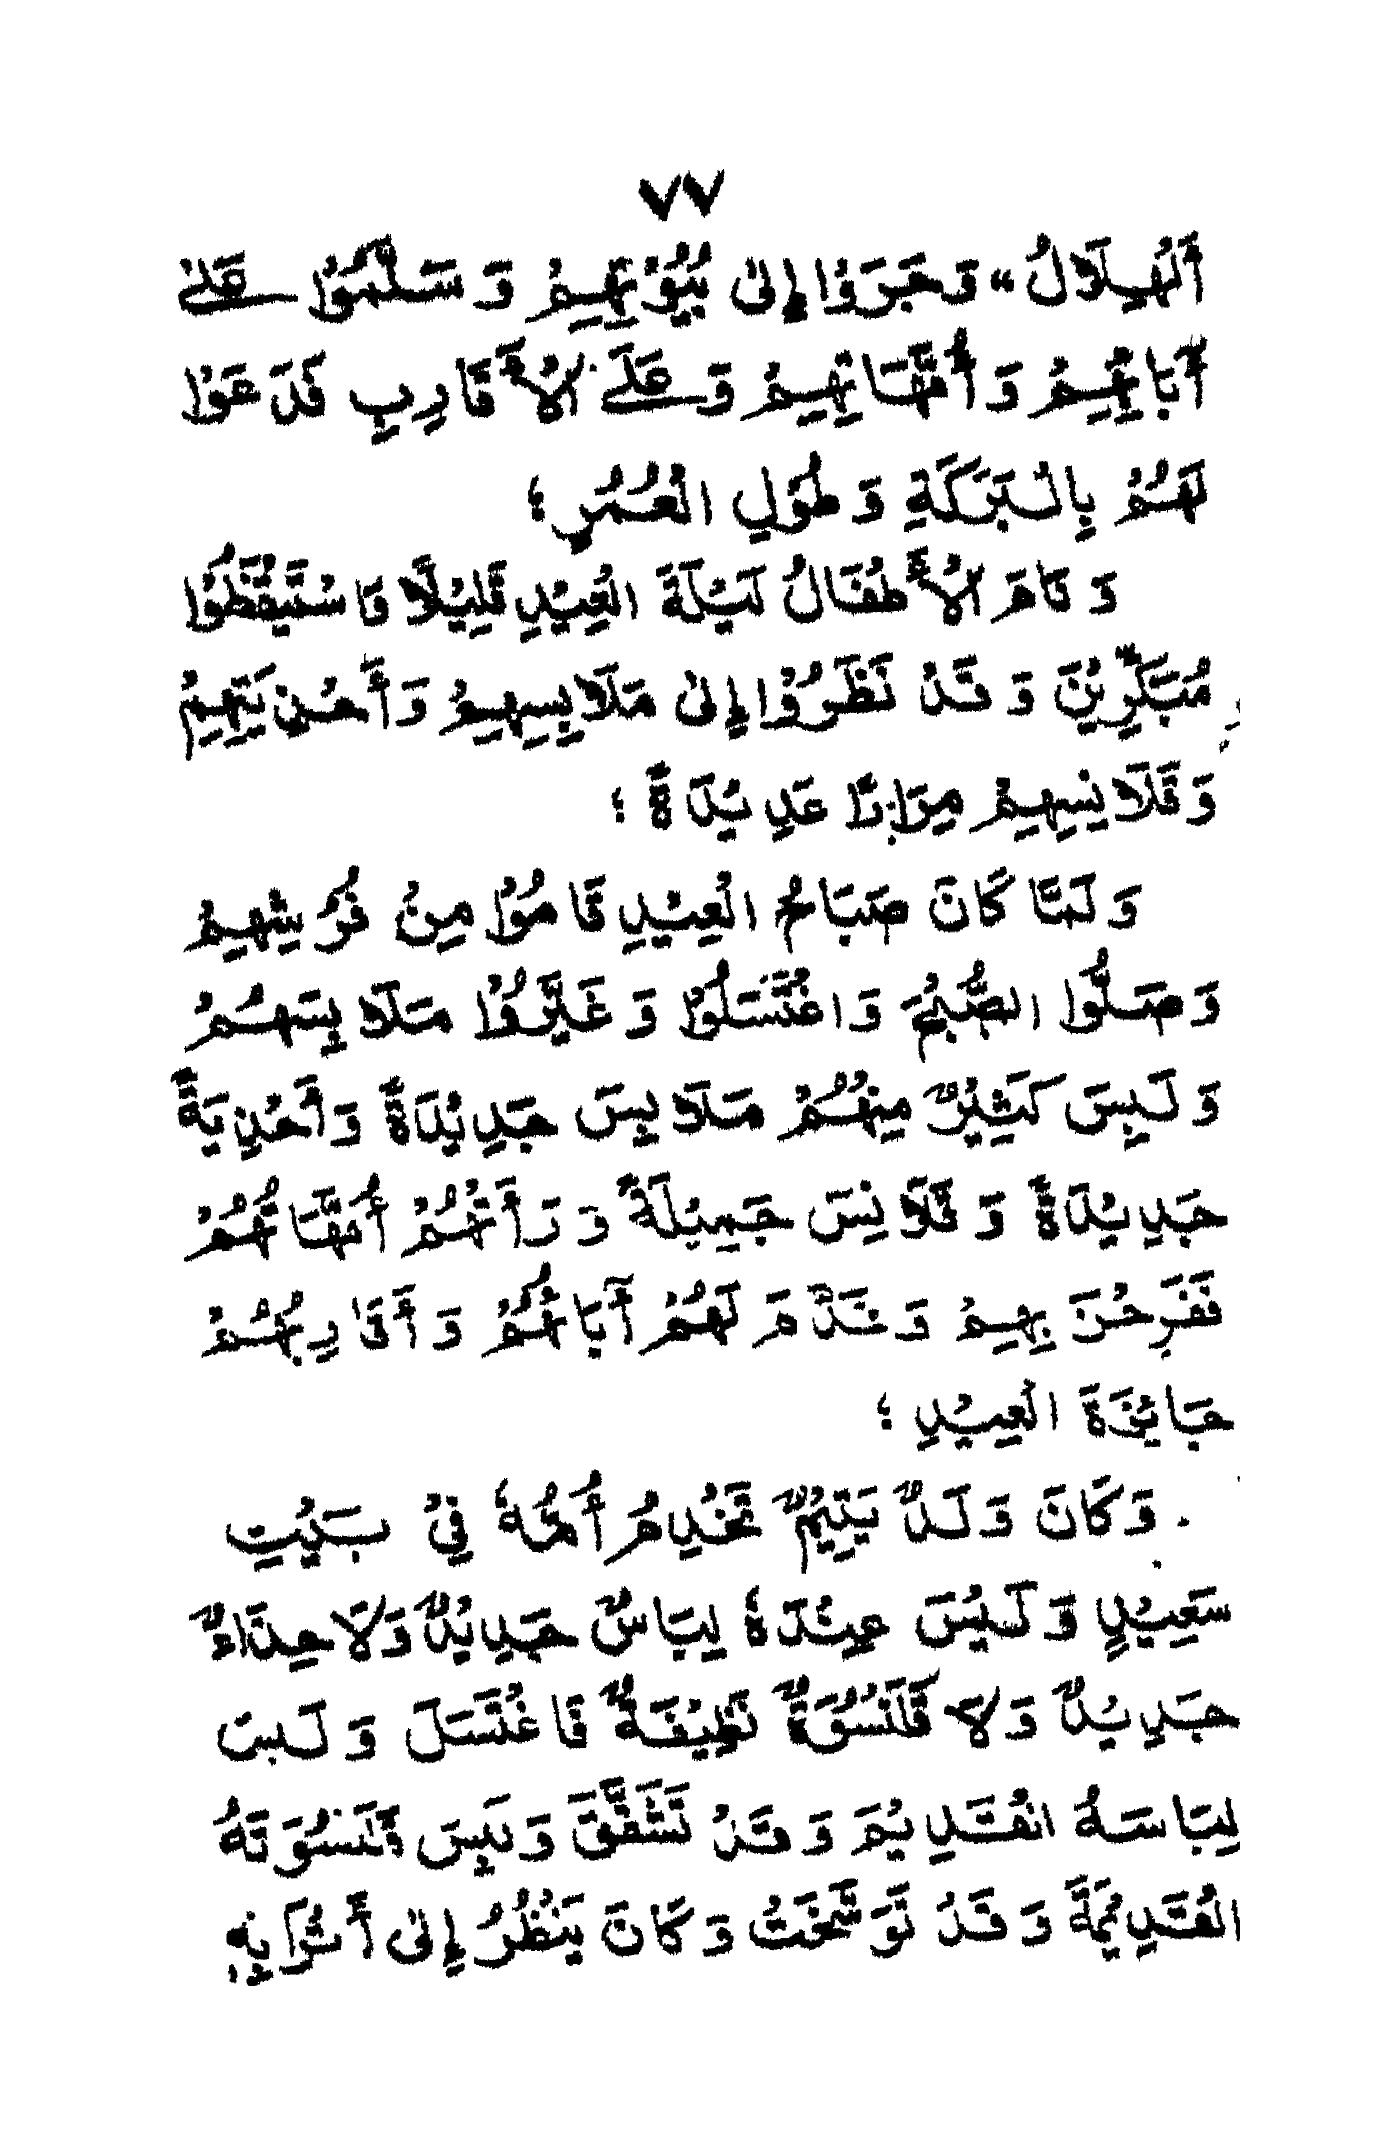 ٧٧
أَلْهِلَالُ" وَجَرَوْا إِلىٰ بُيُوْتِهِمْ وَسَلَّمُوْا عَلىٰ
أٰبَائِهِمْ وَأُمَّهَاتِهِمْ وَعَلَى الْأَقَارِبِ فَدَعَوْا
لَهُمْ بِالْبَرَكَةِ وَطُوْلِ الْعُمُرِ؛
وَنَامَ الْأَطْفَالُ لَيْلَةَ الْعِيْدِ قَلِيْلًا فَاسْتَيْقَظُوْا
مُبَكِّرِيْنَ وَقَدْ نَظَرُوْا إِلىٰ مَلَابِسِهِمْ وَأَحْذِيَتِهِمْ
وَقَلَانِسِهِمْ مِرَارًا عَدِيْدَةً؛
وَلَمَّا كَانَ صَبَاحُ الْعِيْدِ قَامُوْا مِنْ فُرُشِهِمْ
وَصَلُّوا الصُّبْحَ وَاغْتَسَلُوْا وَغَيَّرُوْا مَلَابِسَهُمْ
وَلَبِسَ كَثِيْرٌ مِنْهُمْ مَلَابِسَ جَدِيْدَةً وَأَحْذِيَةً
جَدِيْدَةً وَقَلَانِسَ جَمِيْلَةً وَرَأَتْهُمْ أُمَّهَاتُهُمْ
فَفَرِحْنَ بِهِمْ وَقَدَّمَ لَهُمْ أٰبَائُهُمْ وَأَقَارِبُهُمْ
جَائِزَةَ الْعِيْدِ؛
وَكَانَ وَلَدٌ يَتِيْمٌ تَخْدِمُ أُمُّهٗ فِيْ بَيْتِ
سَعِيْدٍ وَلَيْسَ عِنْدَهٗ لِبَاسٌ جَدِيْدٌ وَلَا حِذَاءٌ
جَدِيْدٌ وَلَا قَلَنْسُوَةٌ نَظِيْفَةٌ فَاغْتَسَلَ وَلَبِسَ
لِبَاسَهُ الْقَدِيْمَ وَقَدْ تَشَقَّقَ وَلَبِسَ قَلَنْسُوَتَهُ
الْقَدِيْمَةَ وَقَدْ تَوَسَّخَتْ وَكَانَ يَنْظُرُ إِلىٰ أَتْرَابِهٖ